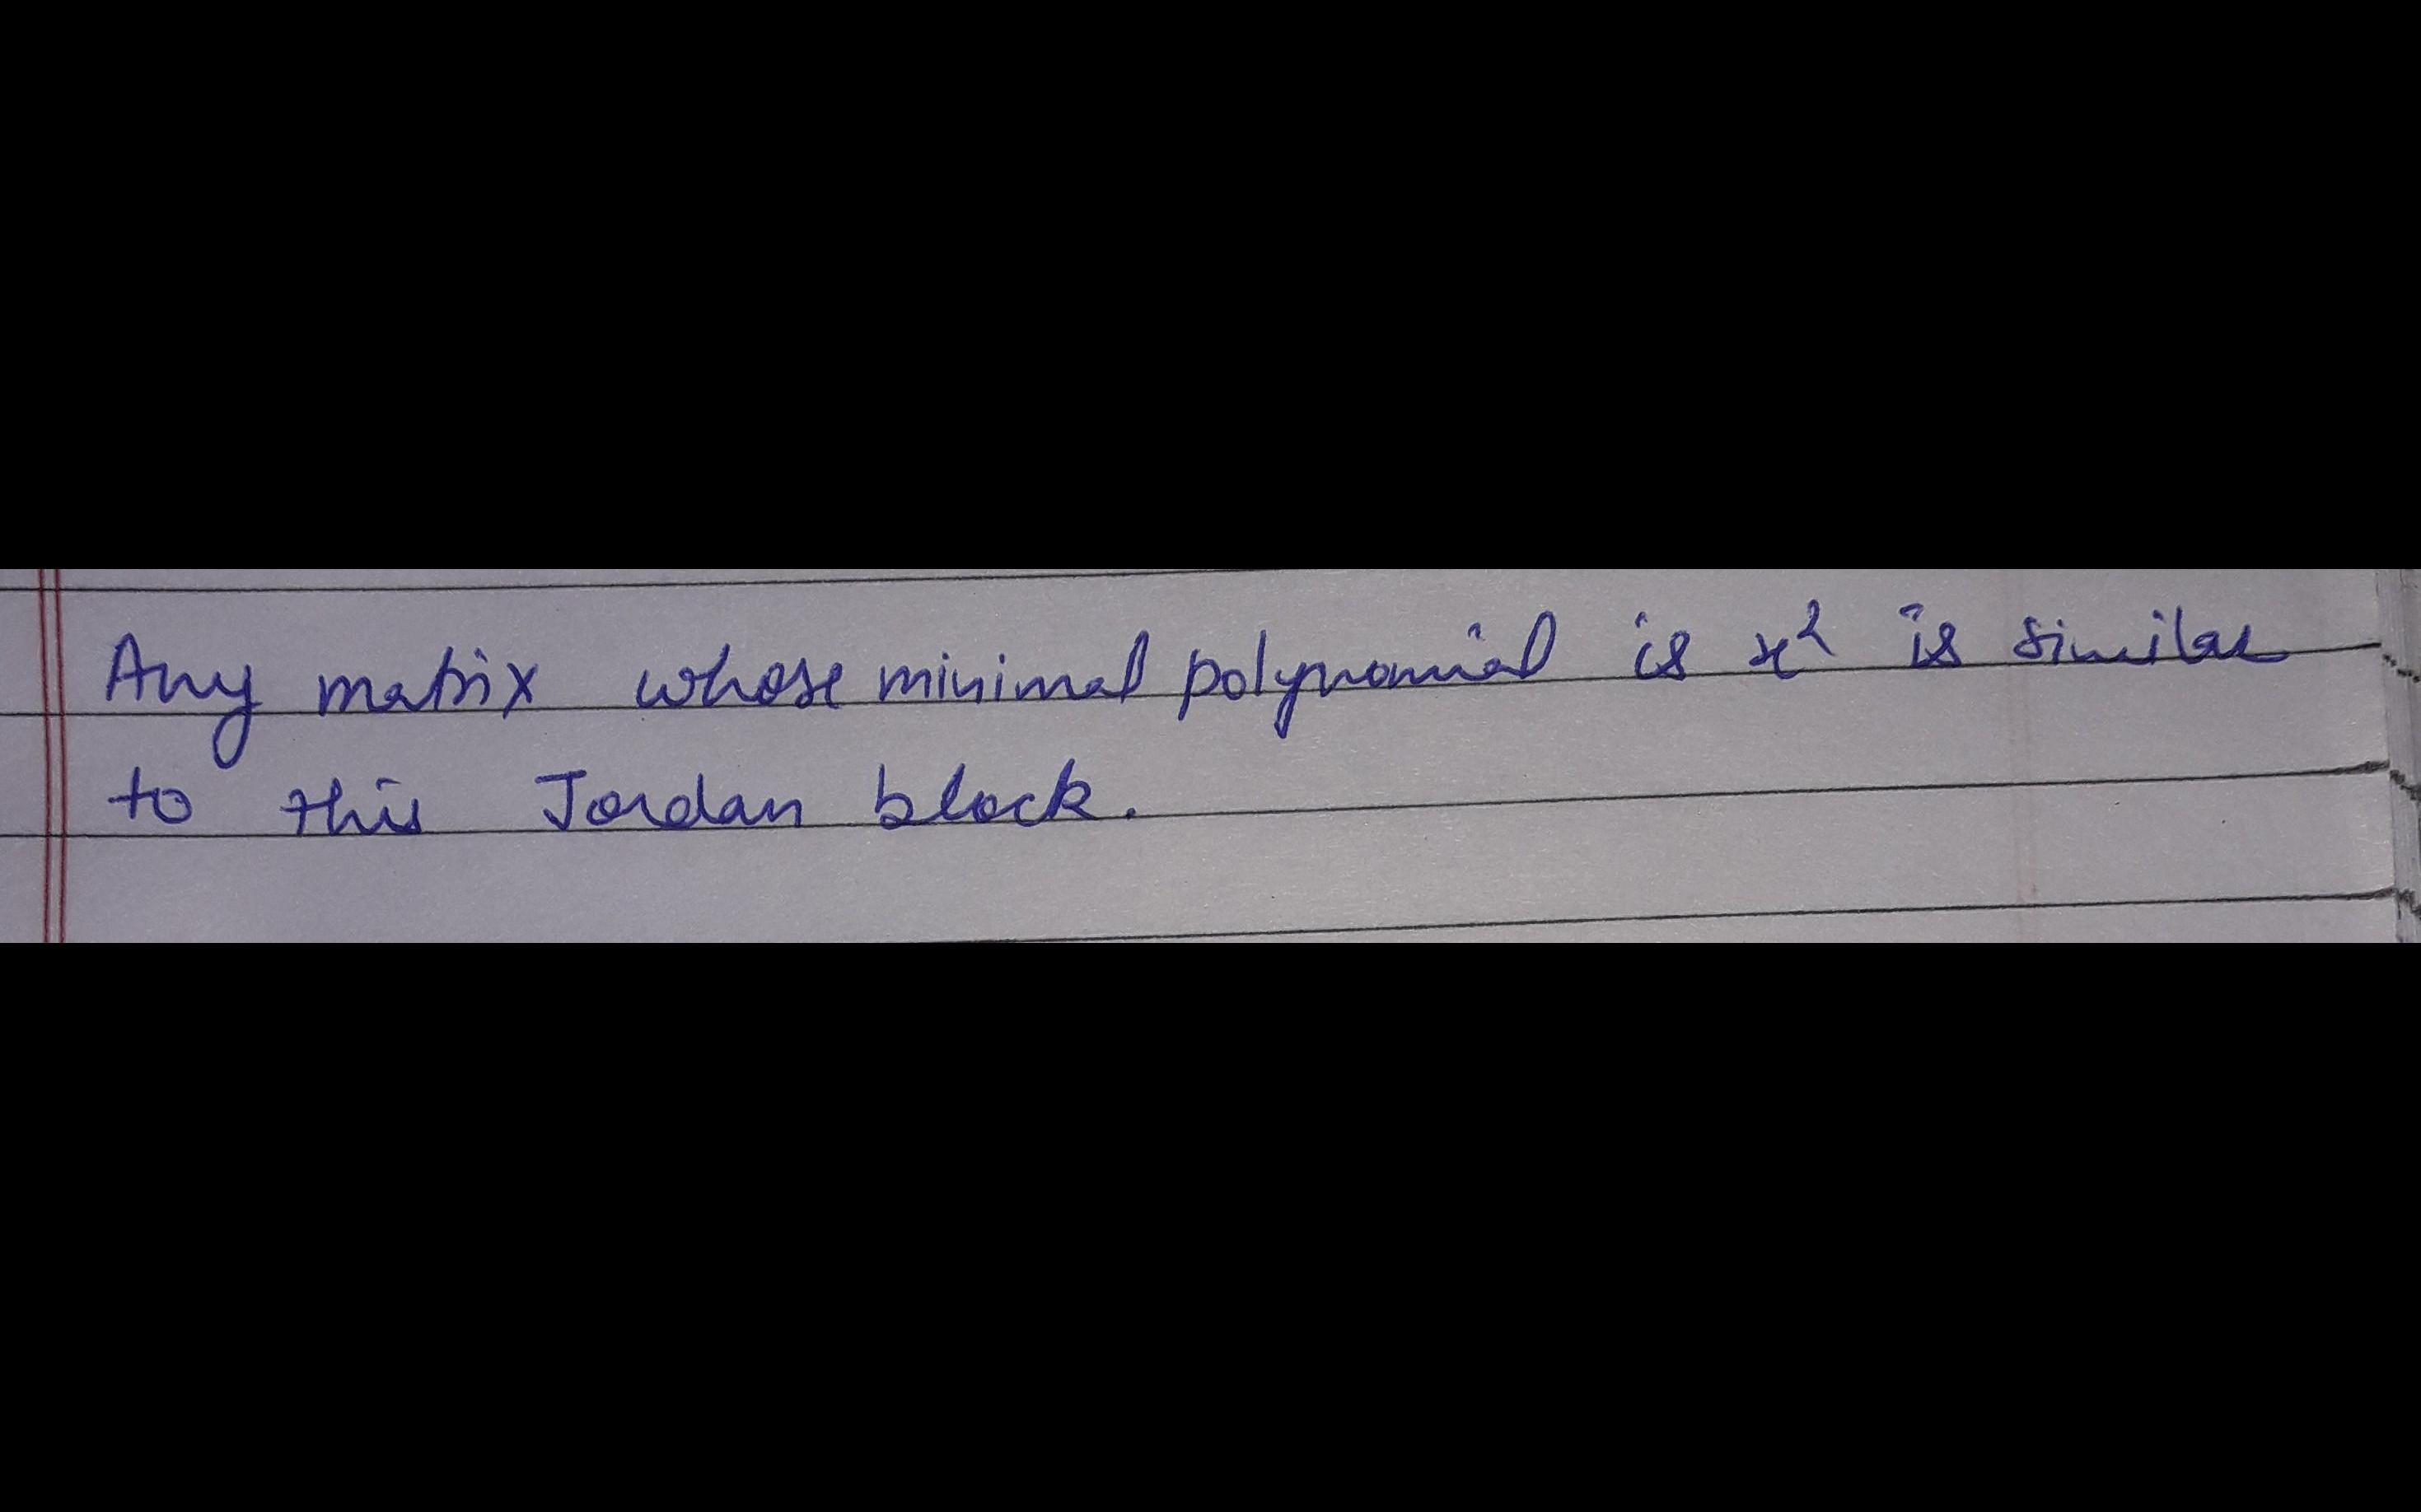 Any matrix whose minimal polynomial is x² is similar
to this Jordan block.